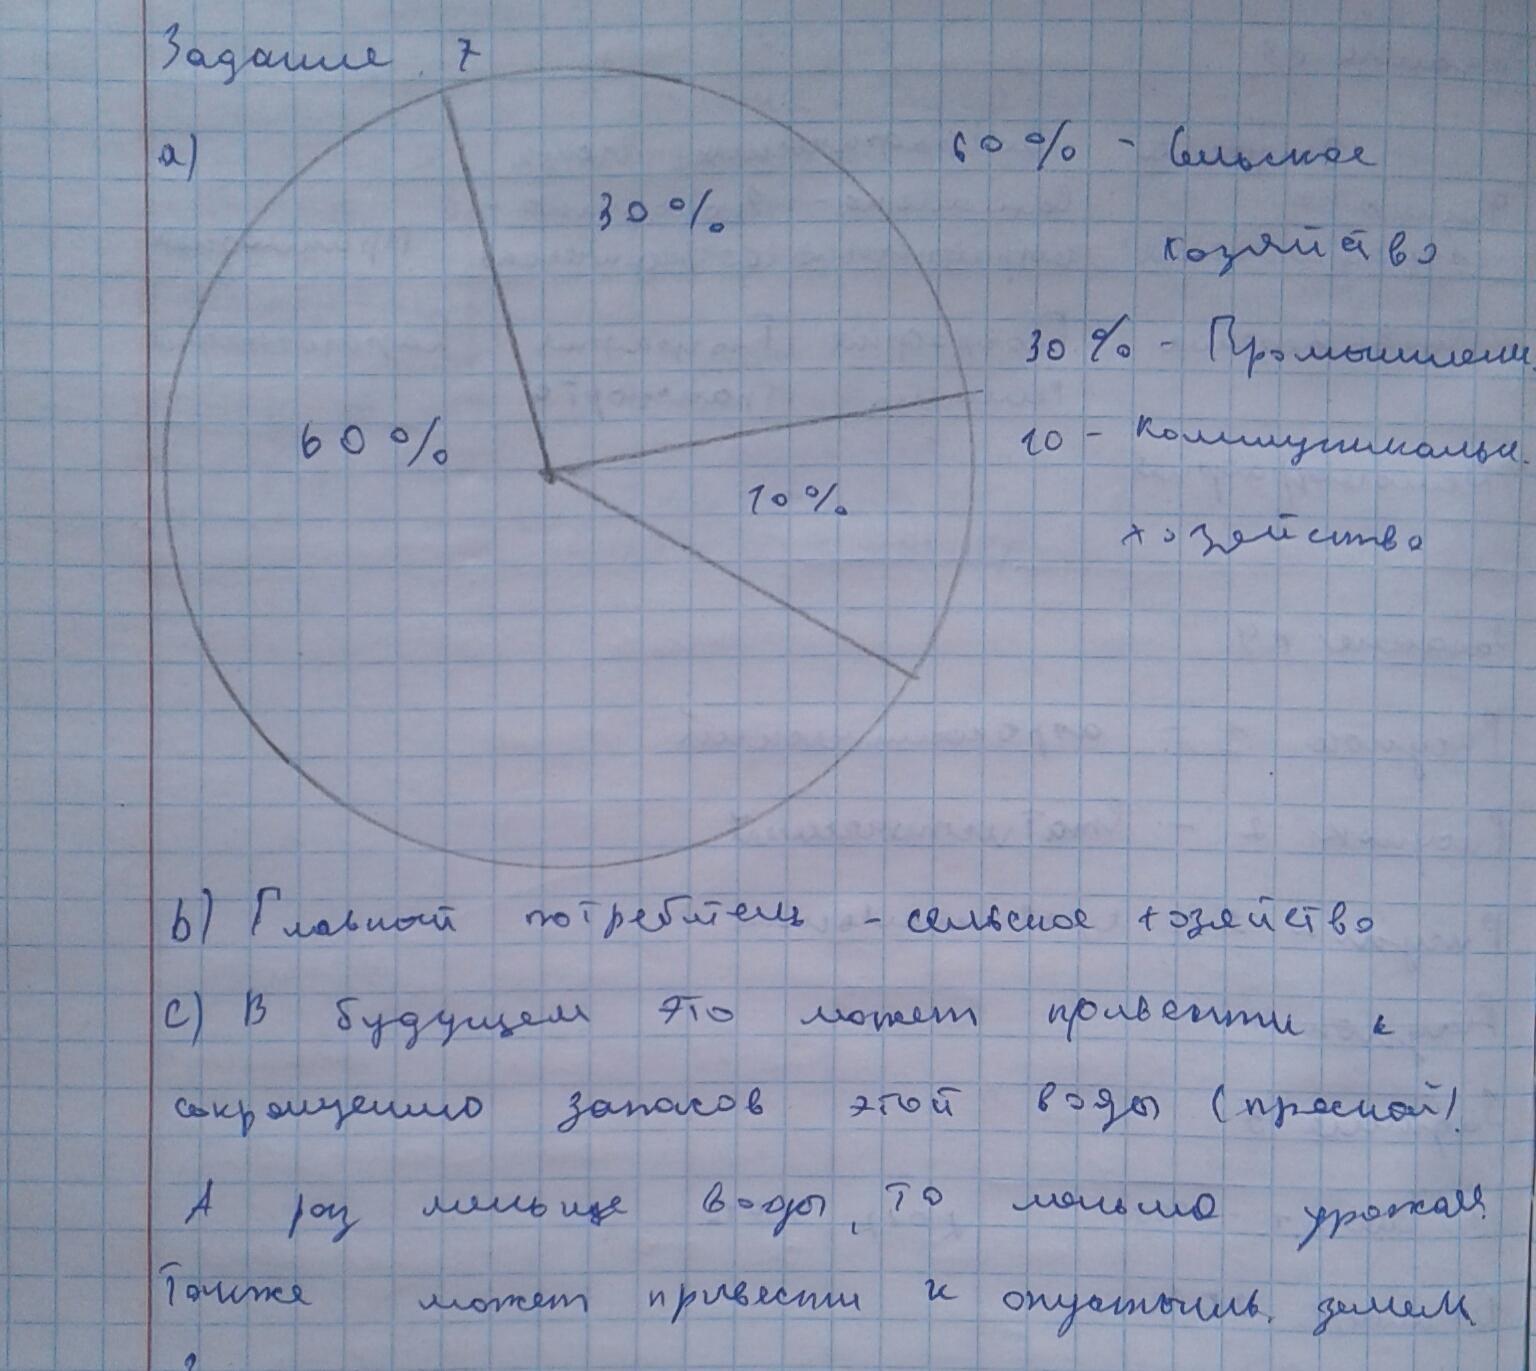 Задание 7
а)
30%
60%
10%
60% - Сельское
хозяйство
30% - Промышленн.
10 - Коммуникальн.
хозяйство
b) Главной потребитель - сельское хозяйство
c) В будущем это может привести к
сокращению запасов этой воды (пресной).
А раз меньше воды, то меньше урожай.
Также может привести к опустынь. земель